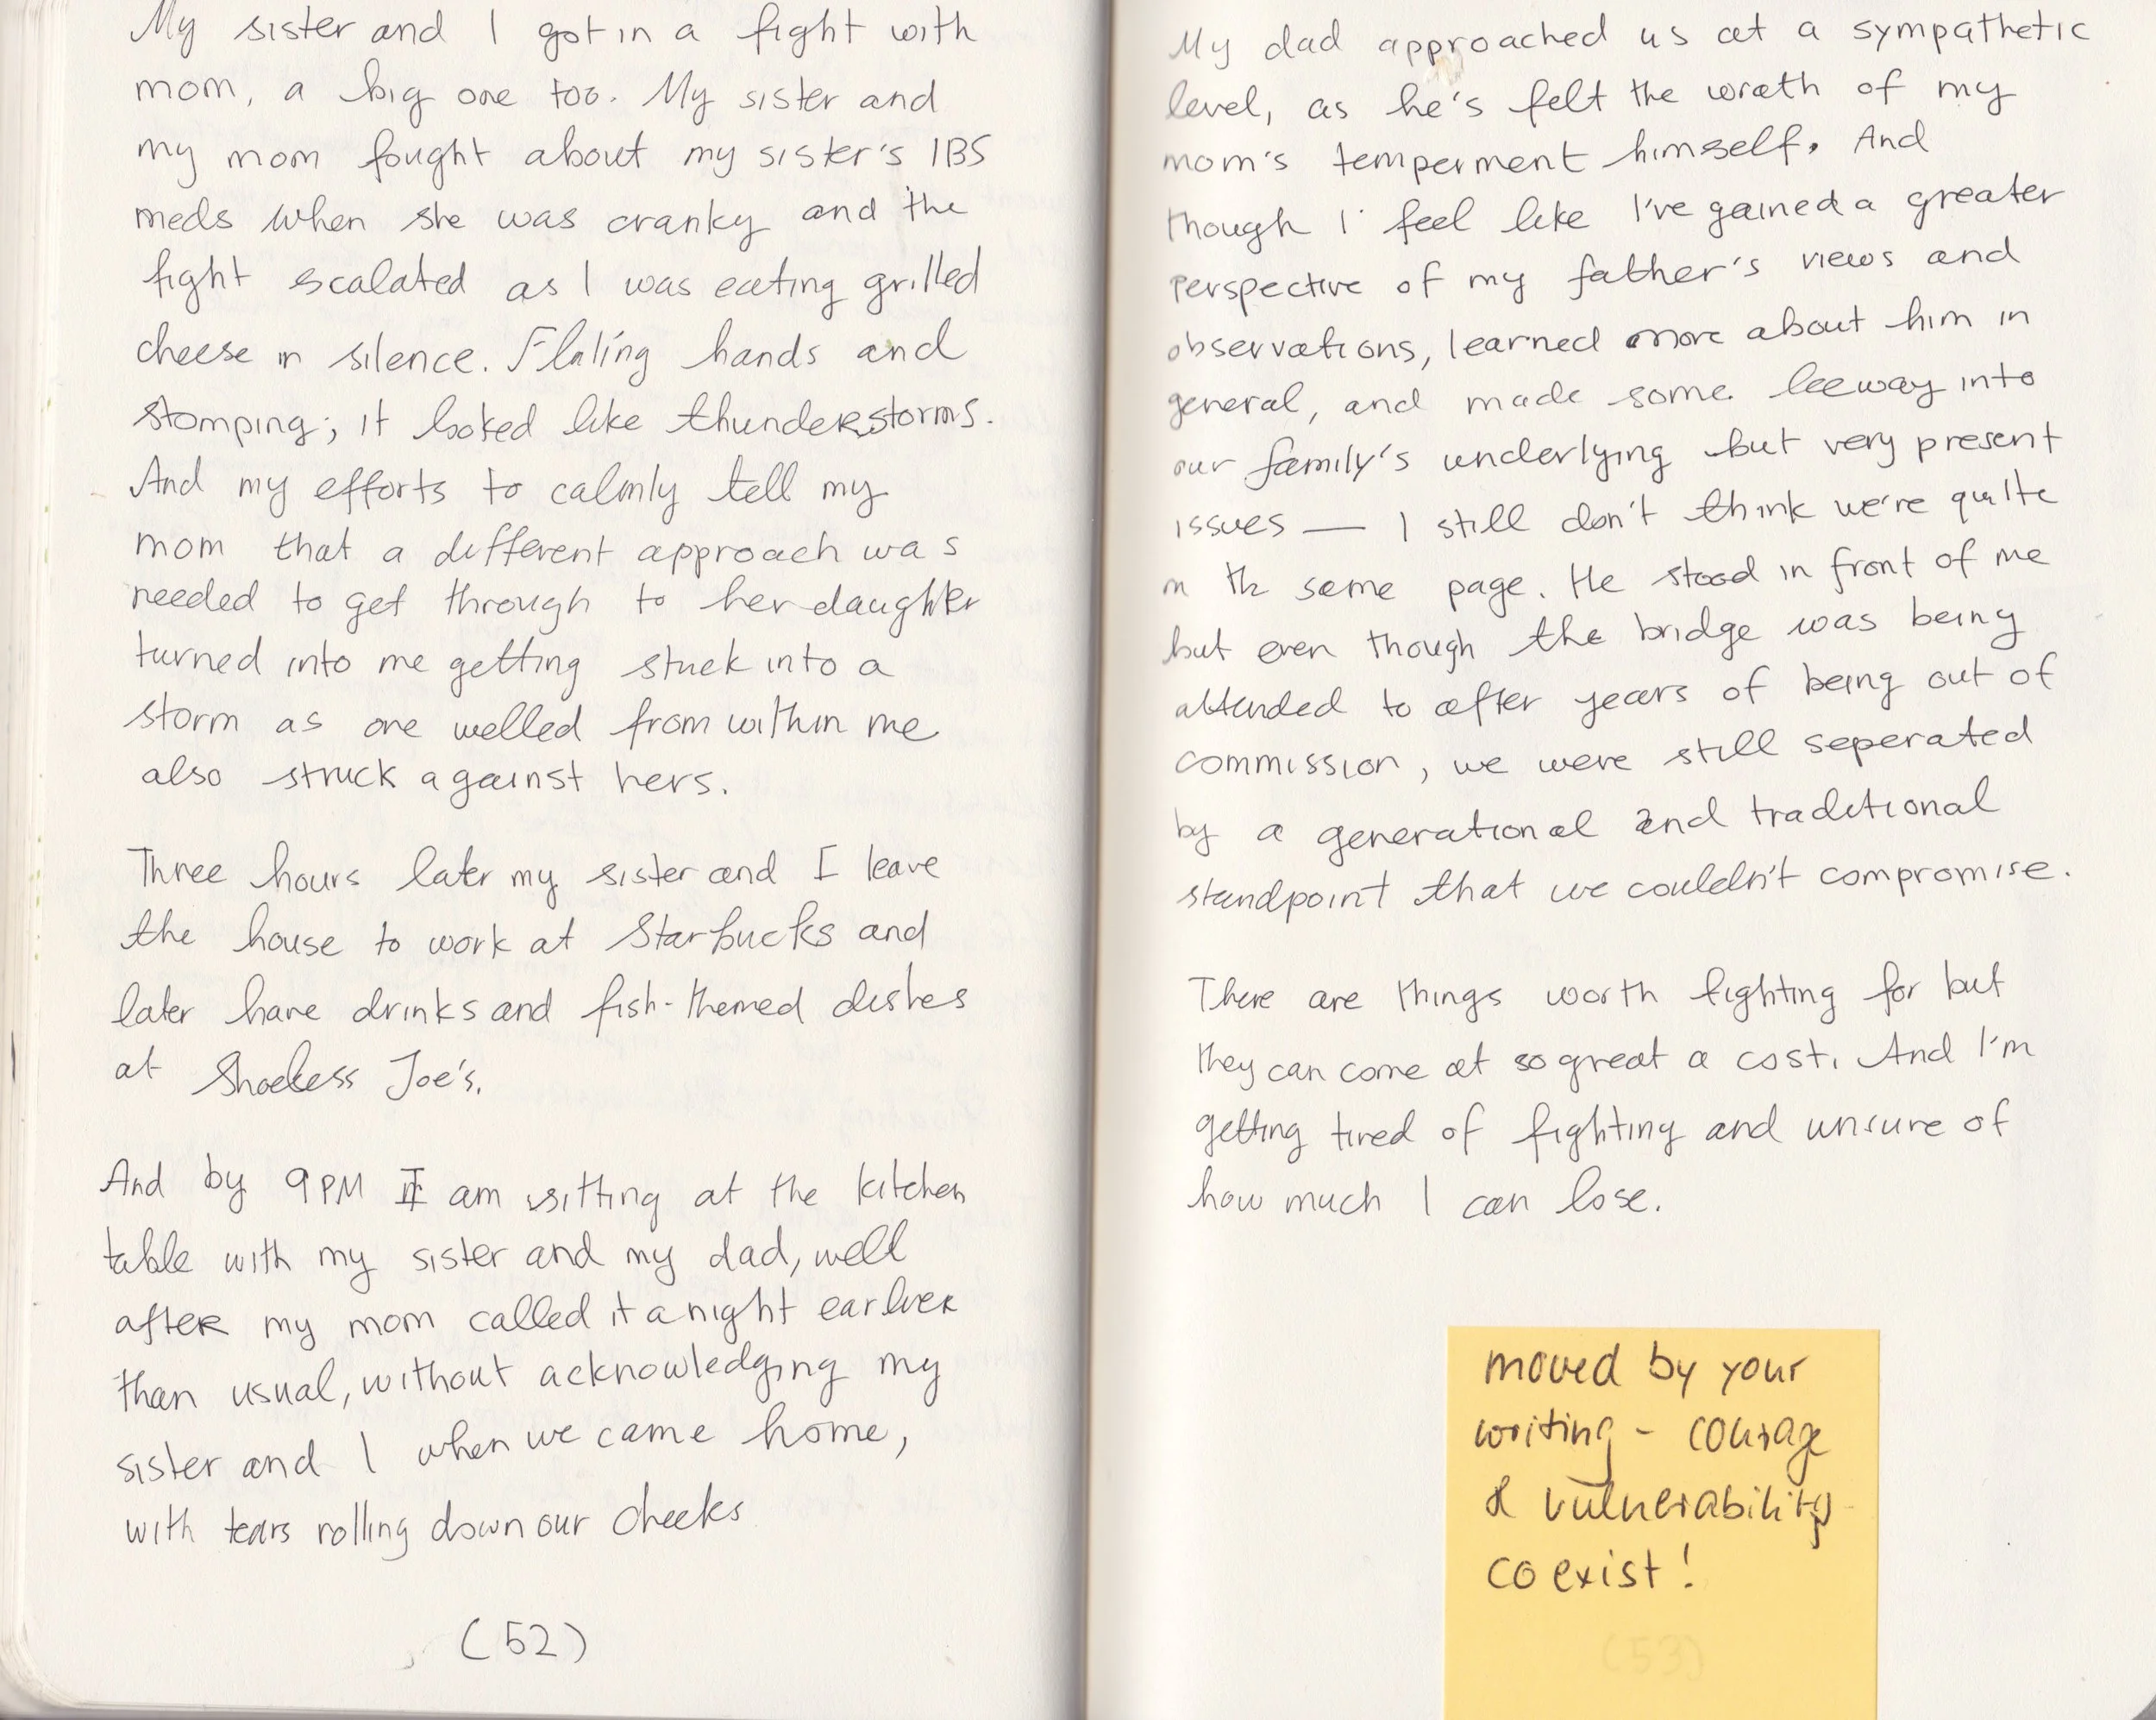 My sister and I got in a fight with
mom, a big one too. My sister and
my mom fought about my sister's IBS
meds when she was cranky and the
fight escalated as I was eating grilled
cheese in silence. Flaling hands and
stomping; it looked like thunderstorms.
And my efforts to calmly tell my
mom that a different approach was
needed to get through to her daughter
turned into me getting stuck into a
storm as one welled from within me
also struck against hers.
Three hours later my sister and I leave
the house to work at Starbucks and
later have drinks and fish-themed dishes
at Shoeless Joe's.
And by 9PM I am sitting at the kitchen
table with my sister and my dad, well
after my mom called it a night earlier
than usual, without acknowledging my
sister and I when we came home,
with tears rolling down our cheeks
(52)
My dad approached us at a sympathetic
level, as he's felt the wrath of my
mom's temperment himself. And
though I feel like I've gained a greater
perspective of my father's views and
observations, learned more about him in
general, and made some leeway into
our family's underlying but very present
issues — I still don't think we're quite
on the same page. He stood in front of me
but even though the bridge was being
attended to after years of being out of
commission, we were still seperated
by a generational and traditional
standpoint that we couldn't compromise.
There are things worth fighting for but
they can come at so great a cost. And I'm
getting tired of fighting and unsure of
how much I can lose.
moved by your
writing - courage
& vulnerability
coexist!
(53)